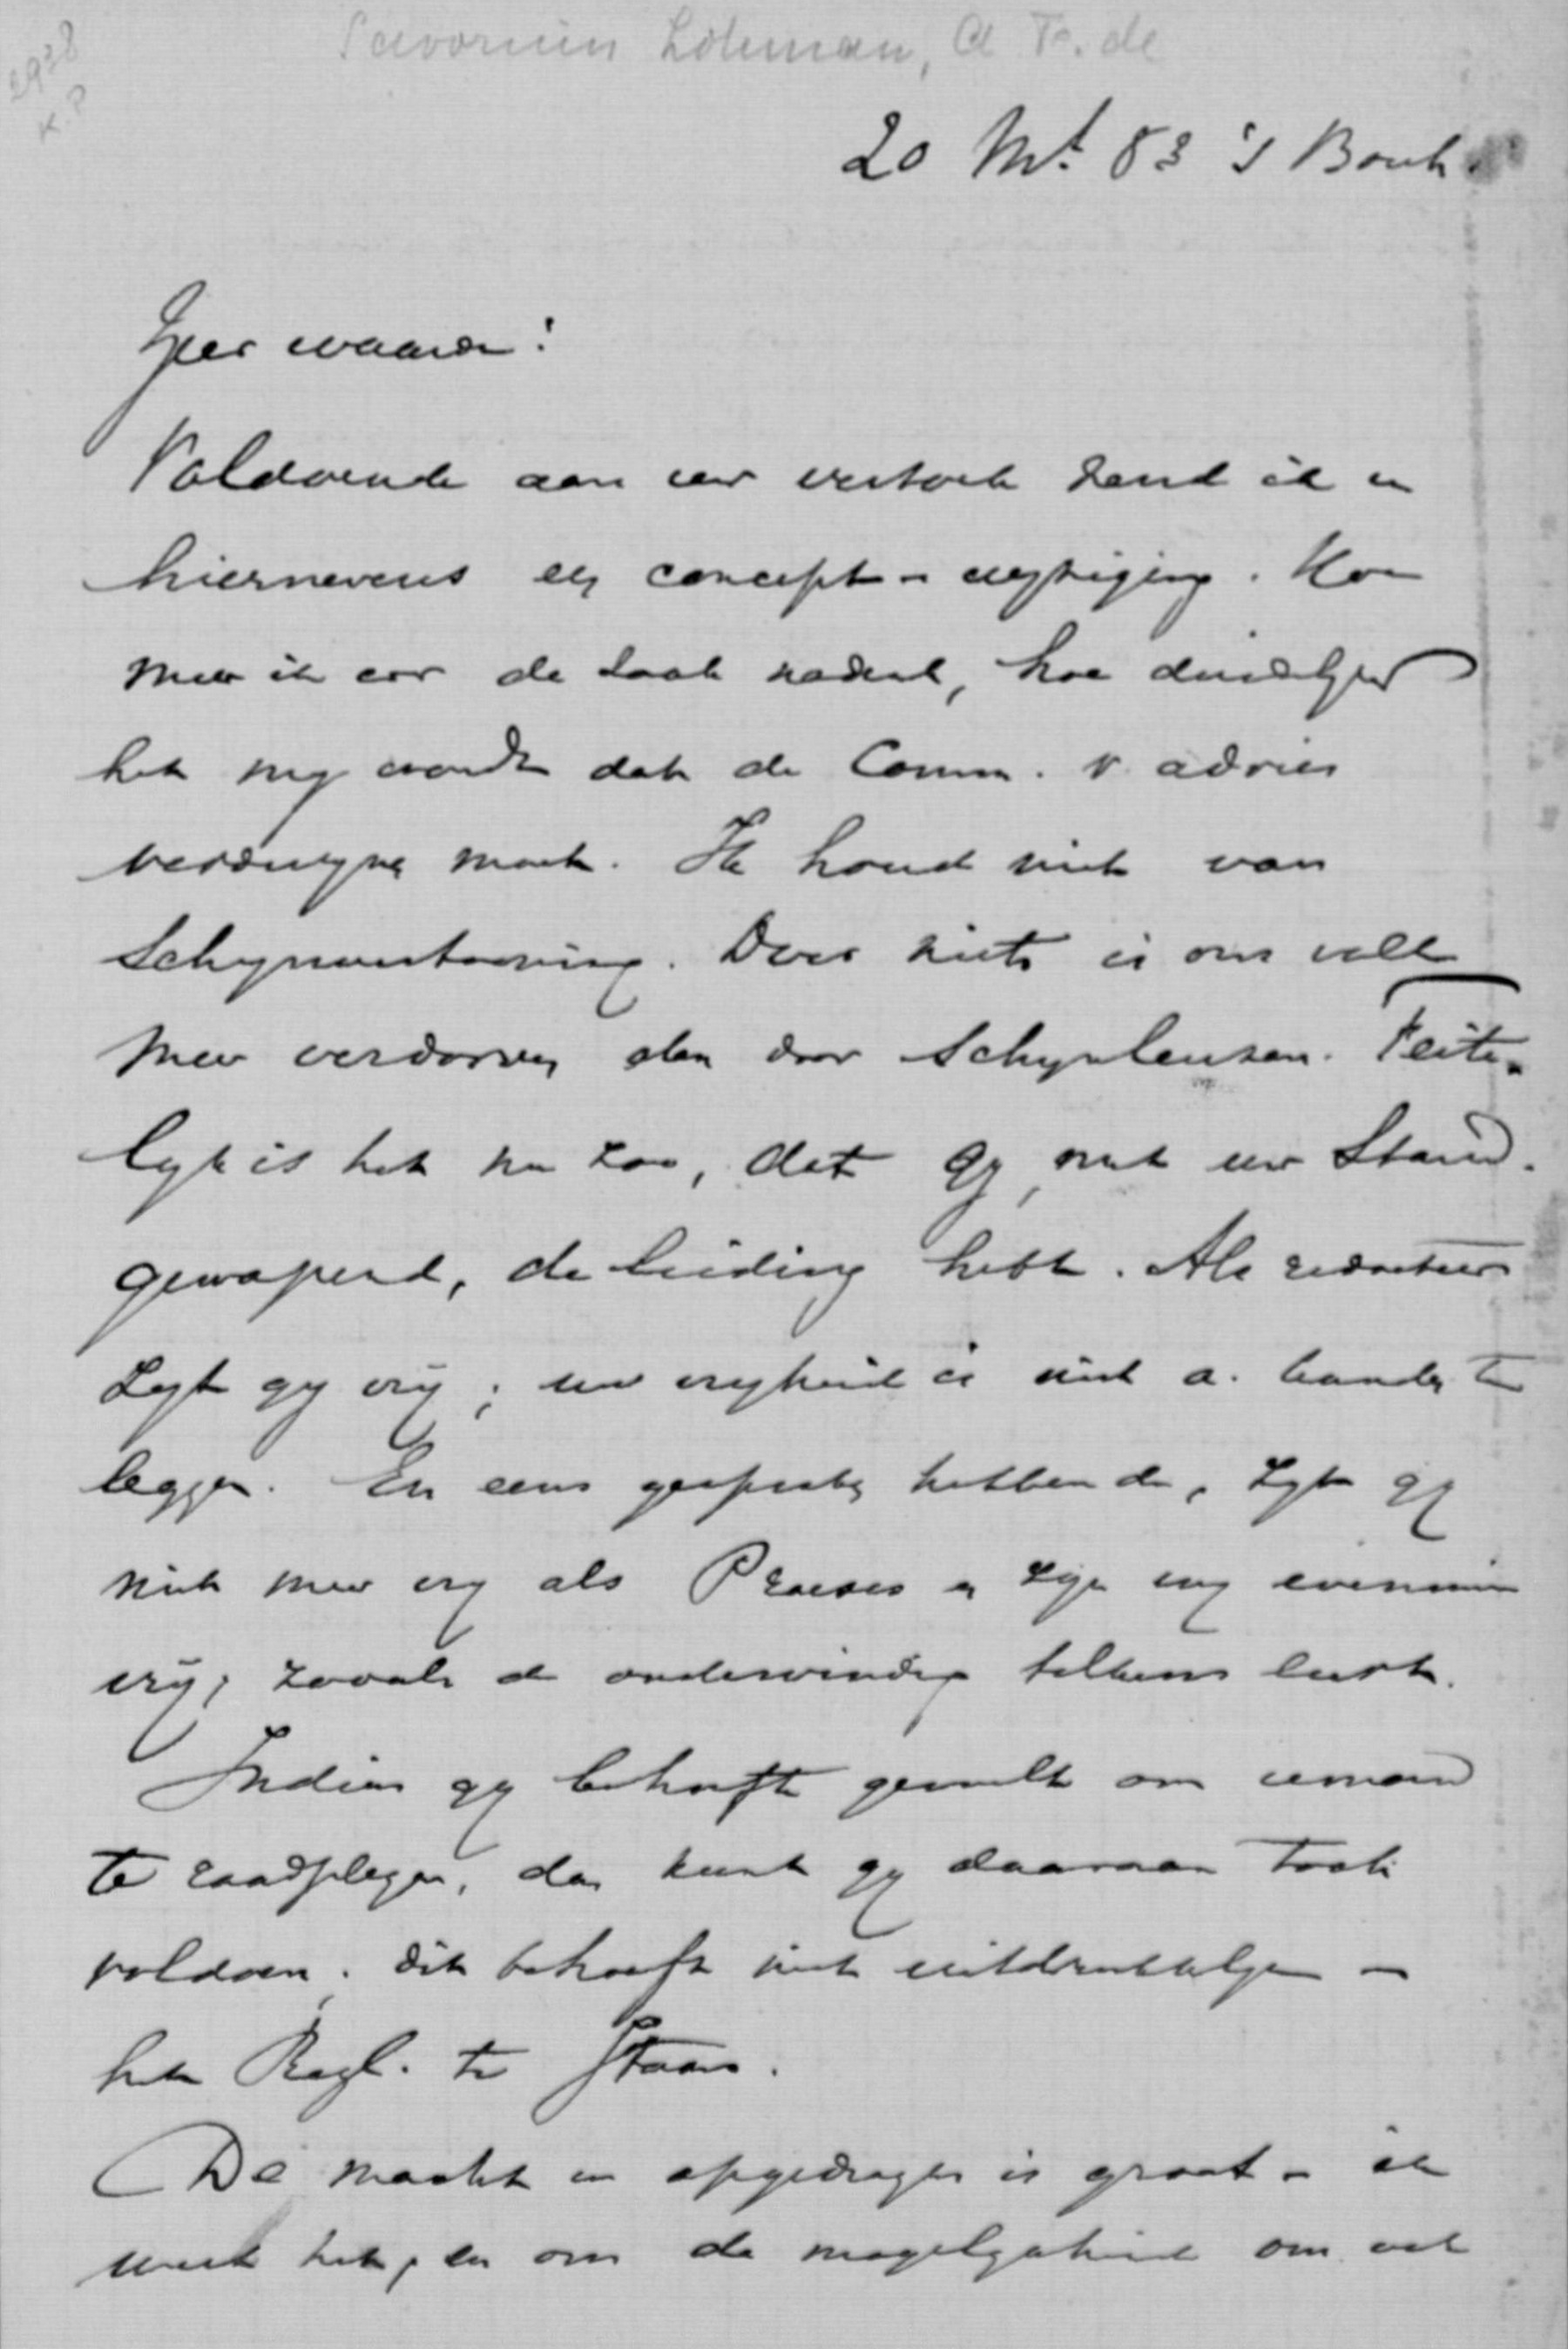 Savornin Lohman, A F. de
2938
K.P
20 Mt. 83 's Bosch
Zeer waarde!
Voldoende aan uw verzoek zend ik u
hiernevens een concept-wijziging. Hoe
meer ik over de zaak nadenk, hoe duidelijker
het mij wordt dat de Comm. v. advies
verdwijnen moet. Ik houd niet van
schijnvertooning. Door niets is ons volk
meer verdorven dan door schijnleuzen. Feite-
lijk is het nu zoo, dat gij, met uw Stand.
gewapend, de leiding hebt. Als redacteur
zijt gij vrij; uw vrijheid is niet a. banden te
leggen. En eens gesproken hebbende, zijt gij
niet meer vrij als Praeses en zijn wij evenmin
vrij; zooals de ondervinding telkens leert.
Indien gij behoefte gevoelt om iemand
te raadplegen, dan kunt gij daaraan toch
voldoen; dit behoeft niet uitdrukkelijk in
het Regl. te staan.
De macht u opgedragen is groot - ik
weet het, en om de mogelijkheid om uit